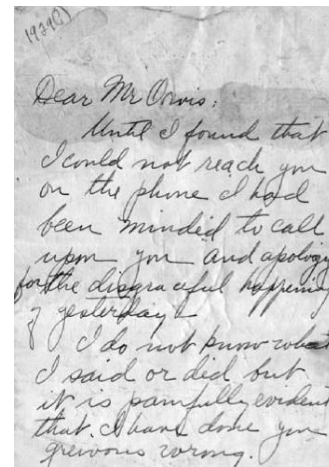 1929(?)
Dear Mr Orvis:
Until I found that
I could not reach you
on the phone I had
been minded to call
upon you and apology
for the disgraceful happening
of yesterday.
I do not know what
I said or did but
it is painfully evident
that I have done you
greivous wrong.